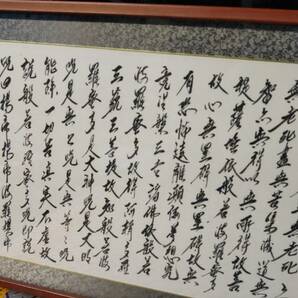 無老死盡無苦集滅道無
智亦無得以無所得故菩
提薩埵依般若波羅蜜多
故心無罣礙無罣礙故無
有恐怖遠離顛倒夢想究
竟涅槃三世諸佛依般若
波羅蜜多故得阿耨多羅
三藐三菩提故知般若波
羅蜜多是大神呪是大明
呪是無上呪是無等々呪
能除一切苦真実不虚故
説般若波羅蜜多呪即説
呪曰掲帝掲帝波羅掲帝